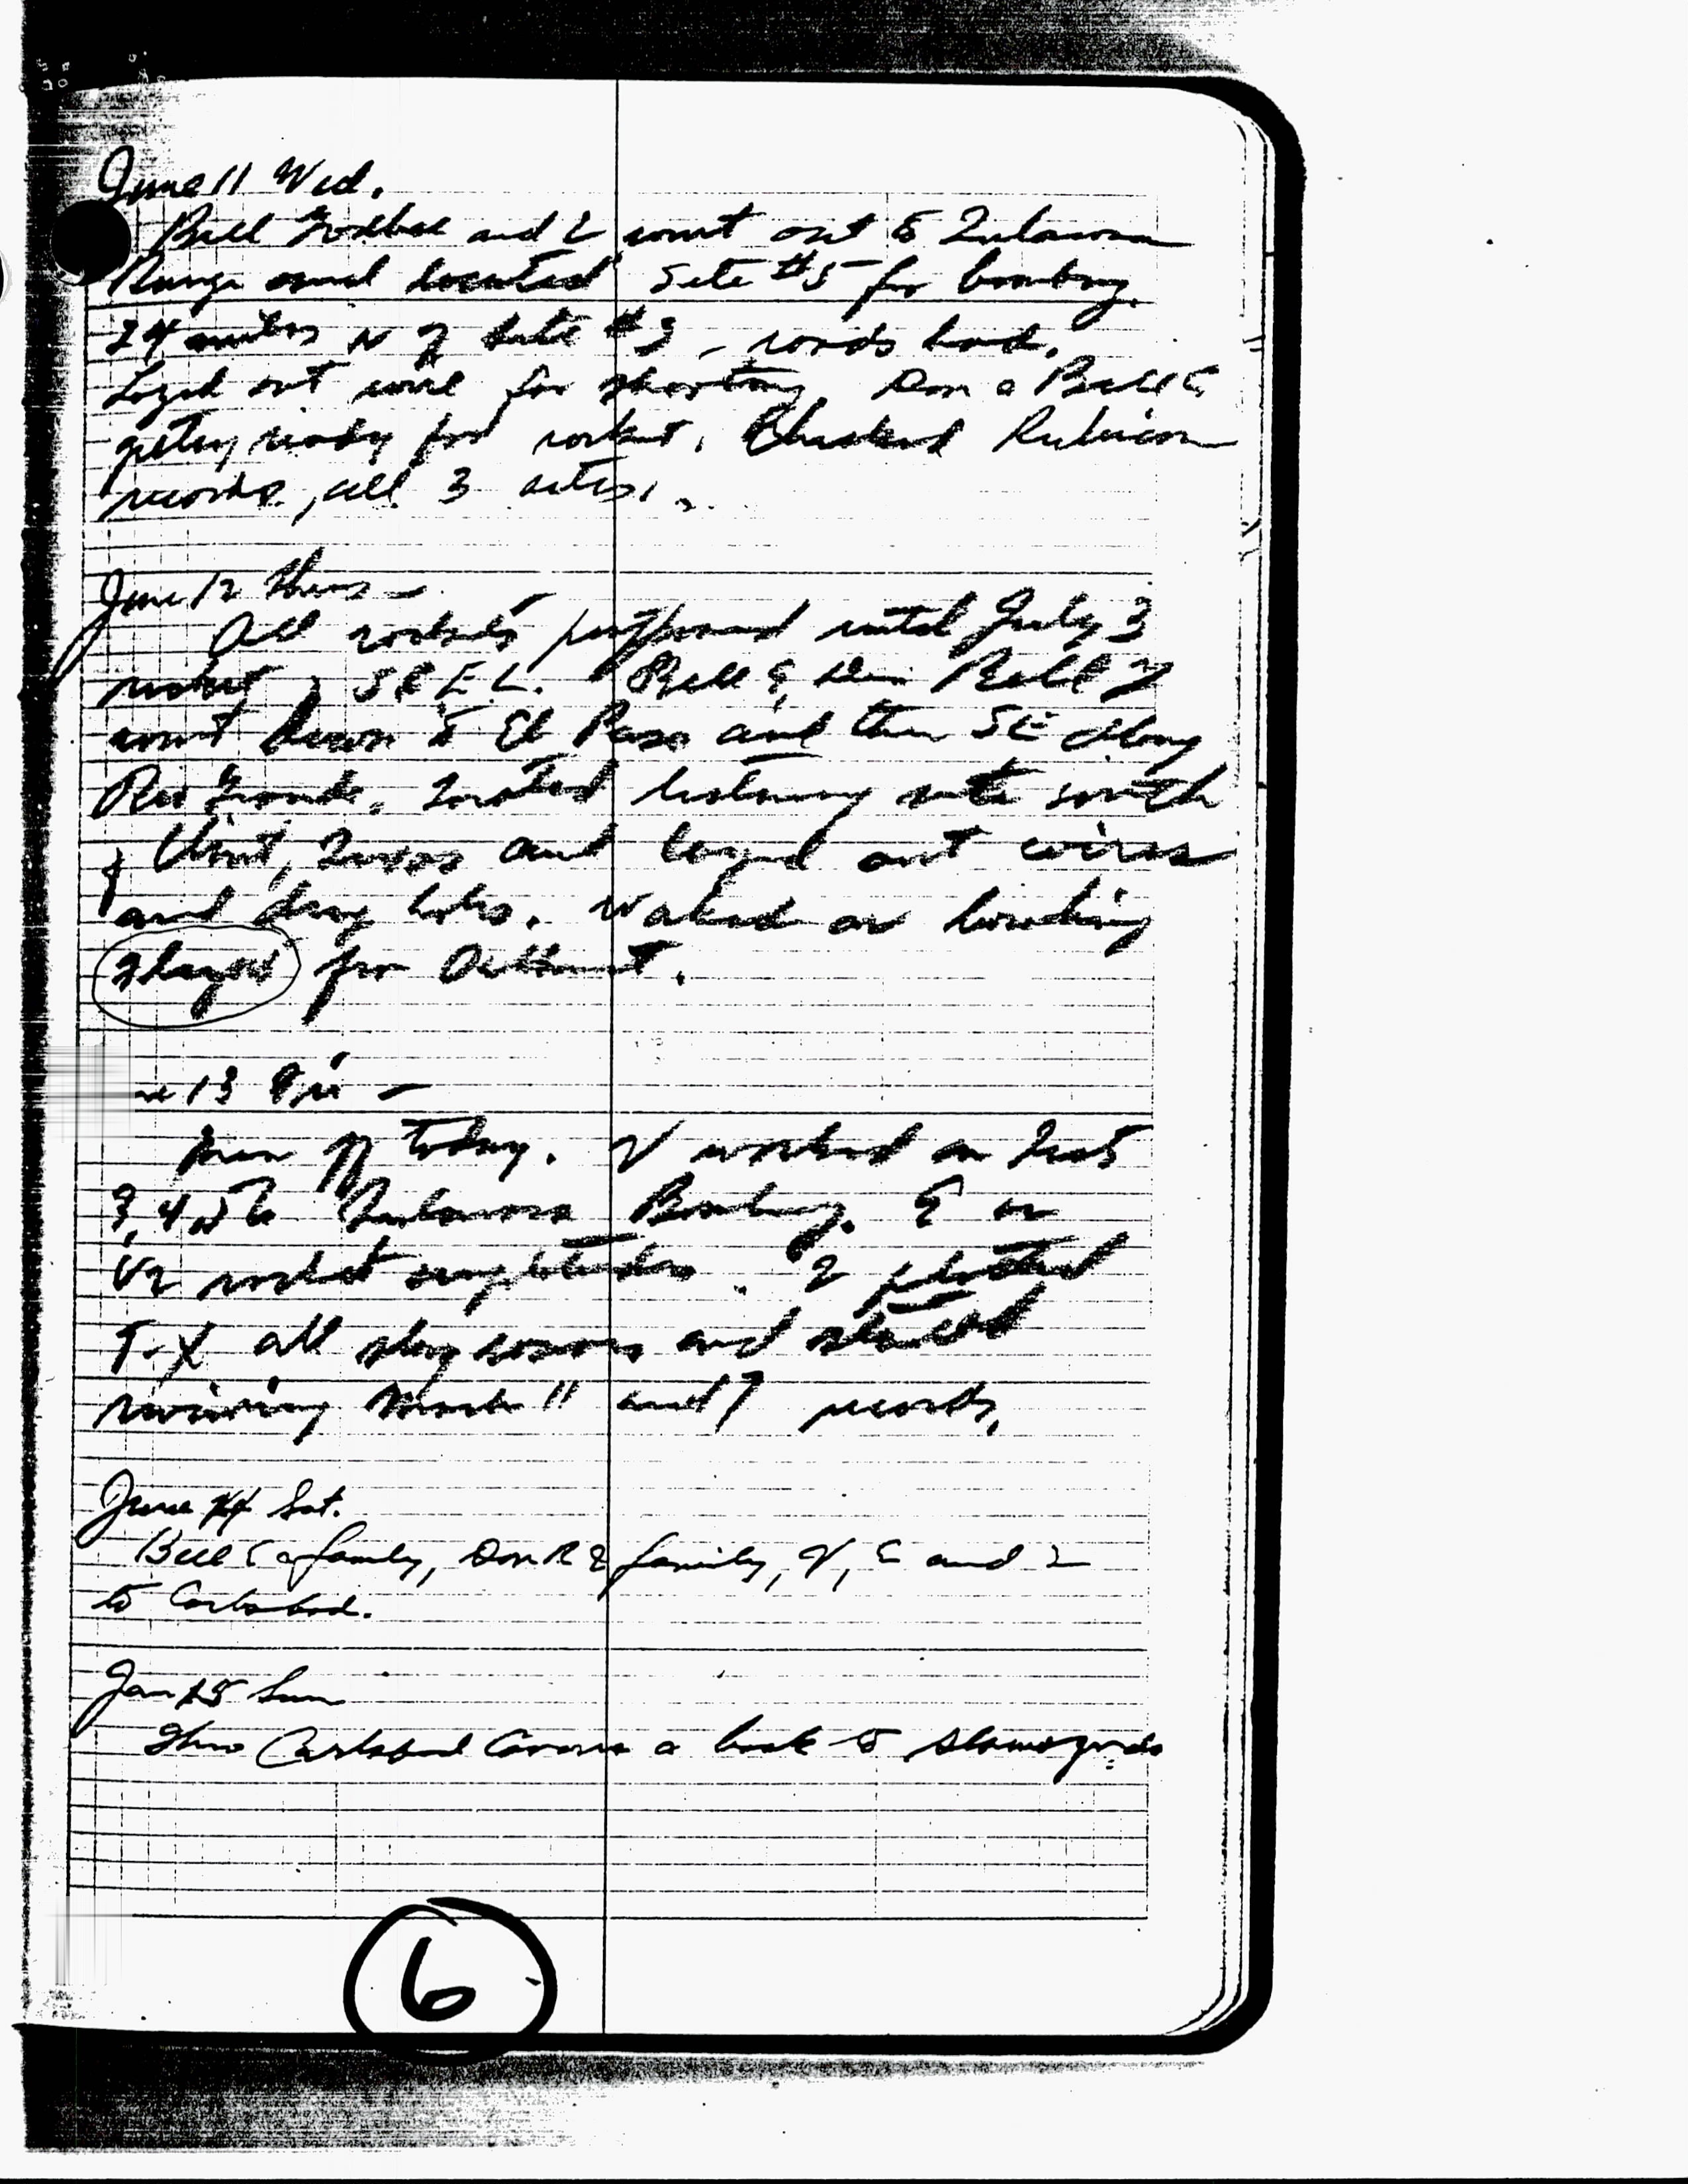 June 11 Wed.
Bill Godbee and I went out to Tularosa
Range and located Site #5 for bombing.
24 miles N of Site #3 - roads bad.
Layed out wire for shooting. Don & Bill G.
getting ready for rocket. Checked Tularosa
records, all 3 sites.
June 12 Thurs -
All rockets postponed until July 3
rocket, SCEL. Bill G, Don
went down to El Paso and then SE along
Rio Grande. Located listening site south
of Clint, Texas and layed out wires
and dug holes. Worked on bombing
from
13 Fri -
off today. V worked on
3, 4 Tularosa Bombing. E on
V2 rocket amplitudes. I plotted
T-X all and started
reviewing March 11 and 7 records.
June 14 Sat.
Bill G & family, Don R & family, V, E and I
to Carlsbad.
Jan 15 Sun
Thro Carlsbad Caverns & back to Alamogordo
6